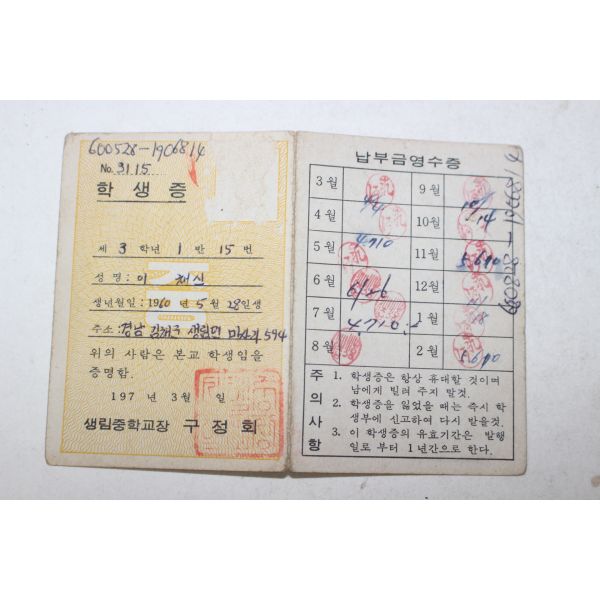 600528-1906814
No. 3115
학생증
제 3 학년 1 반 15 번
성명: 이 채신
생년월일: 1960 년 5 월 28일생
주소: 경남 김해군 생림면 594
위의 사람은 본교 학생임을
증명함.
197 년 3월 일
생림중학교장 구정회
납부금영수증
3월 9월
4월 10월 14
5월 4710 11월 5670
6월 6/26 12월
7월 4710 1월
8월 2월 5670
주의사항
1. 학생증은 항상 휴대할 것이며
남에게 빌려 주지 말것.
2. 학생증을 잃었을 때는 즉시 학
생부에 신고하여 다시 받을것.
3. 이 학생증의 유효기간은 발행
일로 부터 1년간으로 한다.